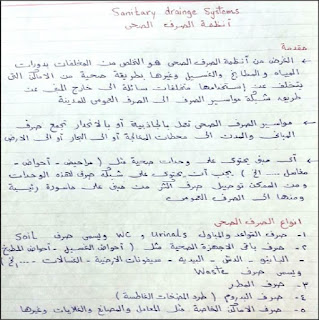 Sanitary drainge Systems
أنظمة الصرف الصحى
مقدمة
← الغرض من أنظمة الصرف الصحى هو التخلص من المخلفات بدورات
المياه والمطابخ والغسيل وغيرها بطريقة صحية من الأماكن التى
يتخلف عن إستخدامها مخلفات سائلة إلى خارج المبنى عن
طريق شبكة مواسير الصرف الى الصرف العمومى للمدينة
← مواسير الصرف الصحى تعمل بالجاذبية أو بالانحدار تجمع صرف
المبانى والمدن الى محطات المعالجة أو الى البحار أو الى الأرض
← أى مبنى يحتوى على وحدات صحية مثل ( مراحيض - أحواض -
مغاسل .... الخ ) يجب أن يحتوى على شبكة صرف لهذه الوحدات
ومن الممكن توصيل صرف أكثر من مبنى على ماسورة رئيسية
ومنها الى الصرف العمومى
أنواع الصرف الصحى
١- صرف القواعد والمباول Urinals و WC ويسمى صرف Soil
٢- صرف باقى الأجهزة الصحية مثل ( أحواض الغسيل - أحواض المطبخ
- البانيو - الدش - البيديه - سيفونات الأرضية - الغسالات - ....الخ )
ويسمى صرف Waste
٣- صرف المطر
٤- صرف البدروم ( طرد المضخات الغاطسة )
٥- صرف الأماكن الخاصة مثل المعامل والمصانع والغلايات وغيرها